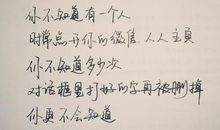 你不知道有一个人
时常点开你的微信 个人主页
你不知道多少次
对话框里打好的字再被删掉
你更不会知道